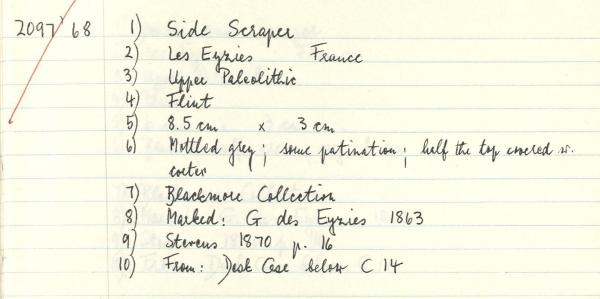 2097'68 1) Side Scraper
2) Les Eyzies France
3) Upper Paleolithic
4) Flint
5) 8.5 cm x 3 cm
6) Mottled grey; some patination; half the top covered w.
cortex
7) Blackmore Collection
8) Marked: G des Eyzies 1863
9) Stevens 1870 p. 16
10) From: Desk Case below C 14